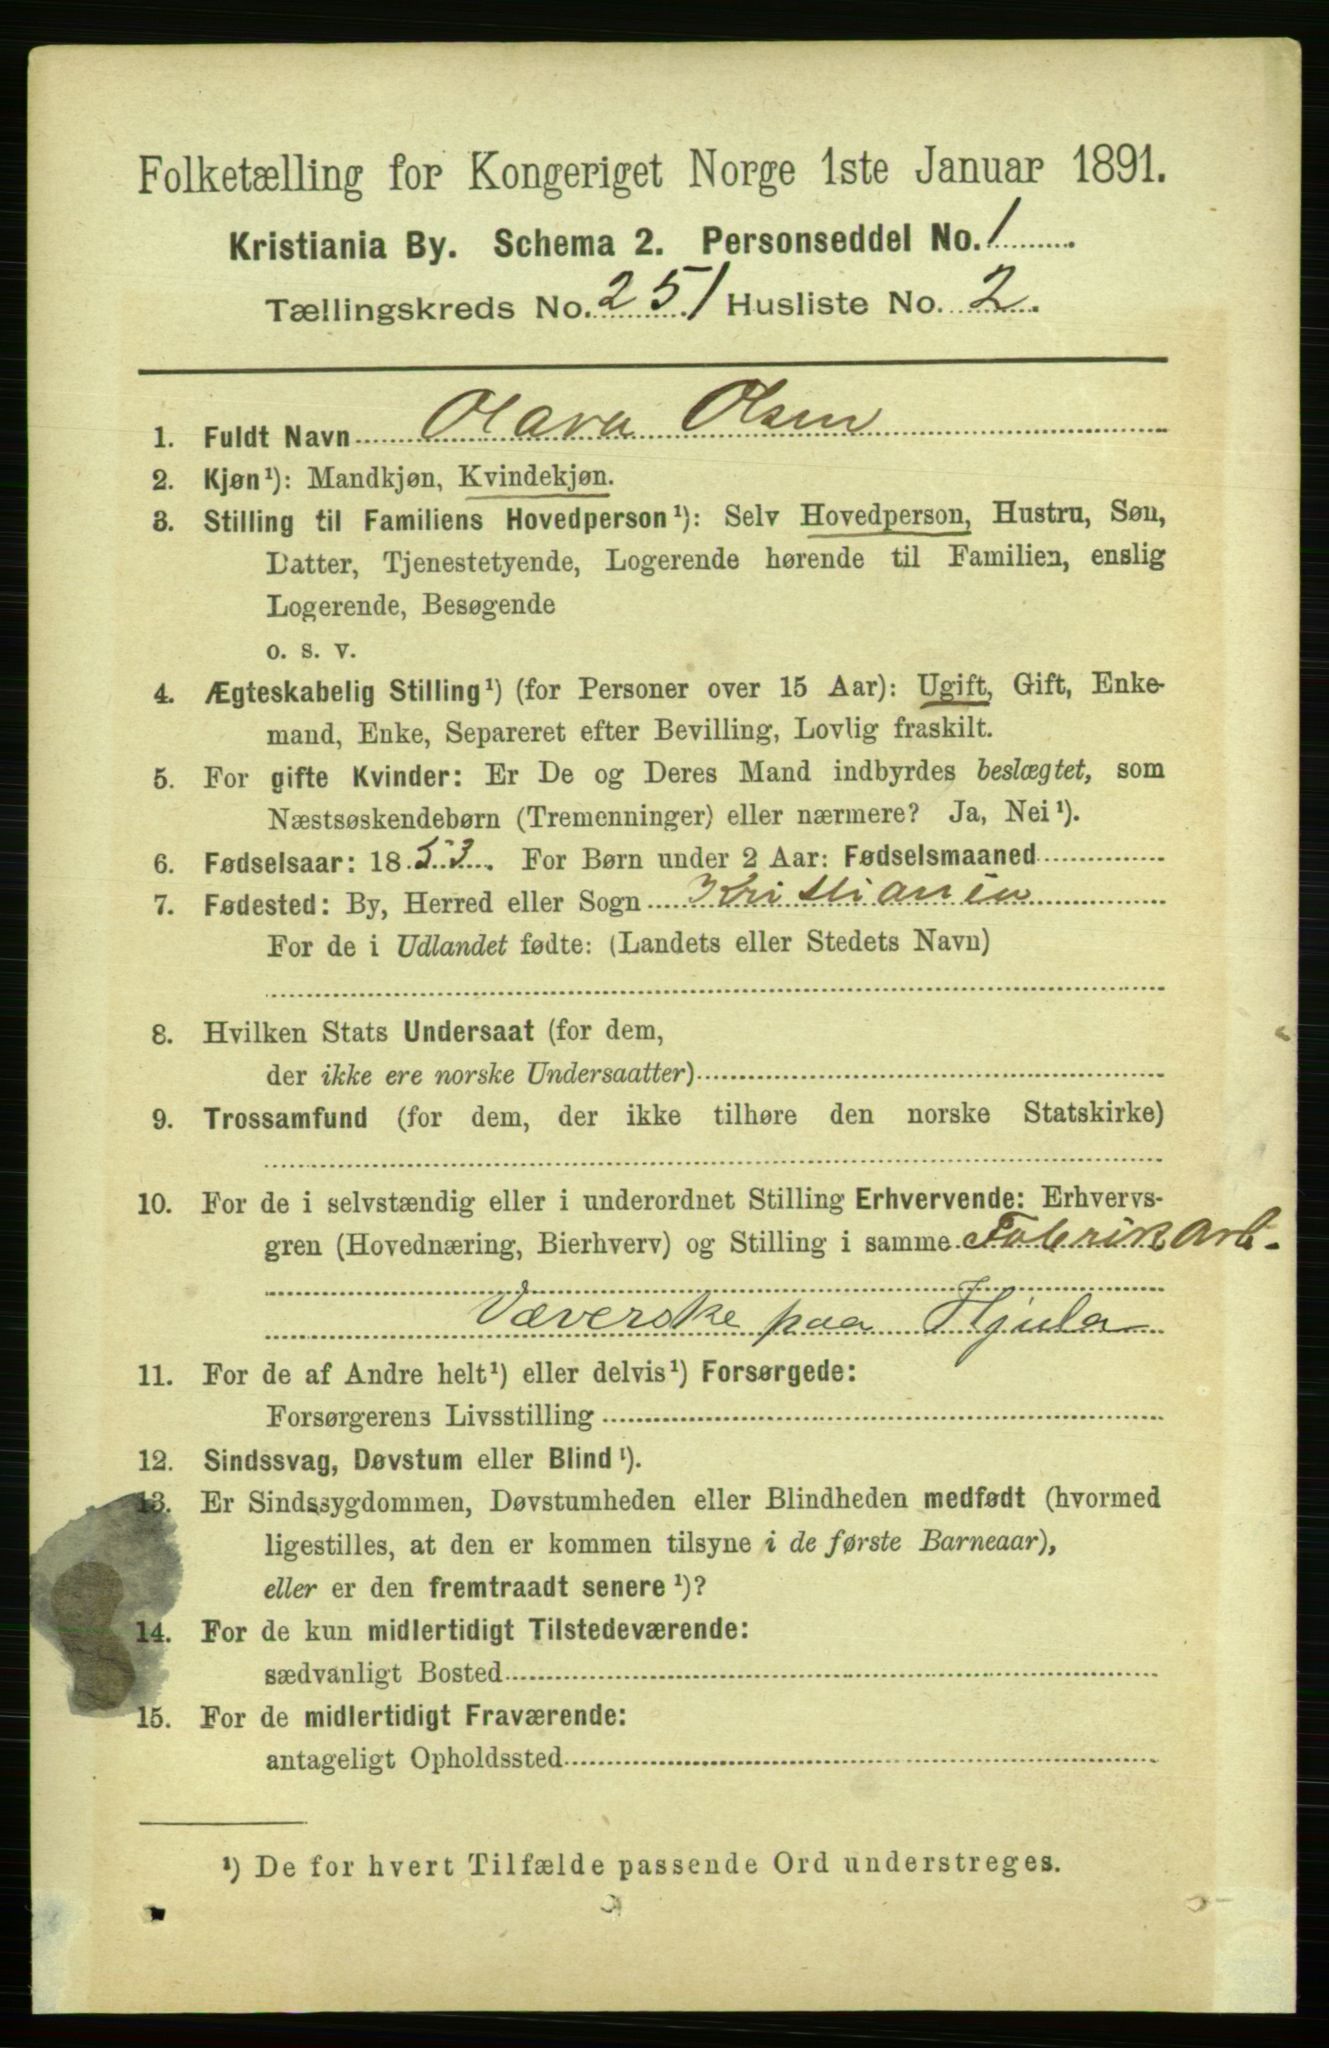 Folketælling for Kongeriget Norge 1ste Januar 1891.
Kristiania By. Schema 2. Personseddel No. 1
Tællingskreds No. 251 Husliste No. 2.
1. Fuldt Navn Olava Olsen
2. Kjøn¹): Mandkjøn, Kvindekjøn.
3. Stilling til Familiens Hovedperson¹): Selv Hovedperson, Hustru, Søn,
Datter, Tjenestetyende, Logerende hørende til Familien, enslig
Logerende, Besøgende
o. s. v.
4. Ægteskabelig Stilling¹) (for Personer over 15 Aar): Ugift, Gift, Enke-
mand, Enke, Separeret efter Bevilling, Lovlig fraskilt.
5. For gifte Kvinder: Er De og Deres Mand indbyrdes beslægtet, som
Næstsøskendebørn (Tremenninger) eller nærmere? Ja, Nei¹).
6. Fødselsaar: 1853. For Børn under 2 Aar: Fødselsmaaned
7. Fødested: By, Herred eller Sogn Kristiania
For de i Udlandet fødte: (Landets eller Stedets Navn)
8. Hvilken Stats Undersaat (for dem,
der ikke ere norske Undersaatter)
9. Trossamfund (for dem, der ikke tilhøre den norske Statskirke)
10. For de i selvstændig eller i underordnet Stilling Erhvervende: Erhvervs-
gren (Hovednæring, Bierhverv) og Stilling i samme Fabrikarb.
Væverske paa Hjula
11. For de af Andre helt¹) eller delvis¹) Forsørgede:
Forsørgerens Livsstilling
12. Sindssvag, Døvstum eller Blind¹).
13. Er Sindssygdommen, Døvstumheden eller Blindheden medfødt (hvormed
ligestilles, at den er kommen tilsyne i de første Barneaar),
eller er den fremtraadt senere¹)?
14. For de kun midlertidigt Tilstedeværende:
sædvanligt Bosted
15. For de midlertidigt Fraværende:
antageligt Opholdssted
¹) De for hvert Tilfælde passende Ord understreges.